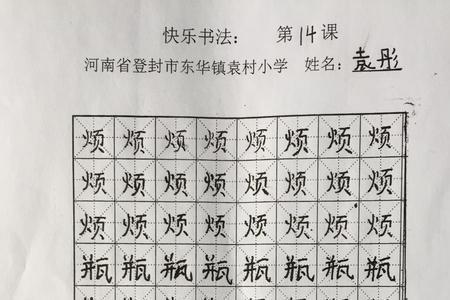 快乐书法： 第14课
河南省登封市东华镇袁村小学 姓名：袁彤
烦烦烦烦烦烦烦烦
烦烦烦烦烦烦烦烦
烦烦烦烦烦烦烦烦
瓶瓶瓶瓶瓶瓶瓶瓶